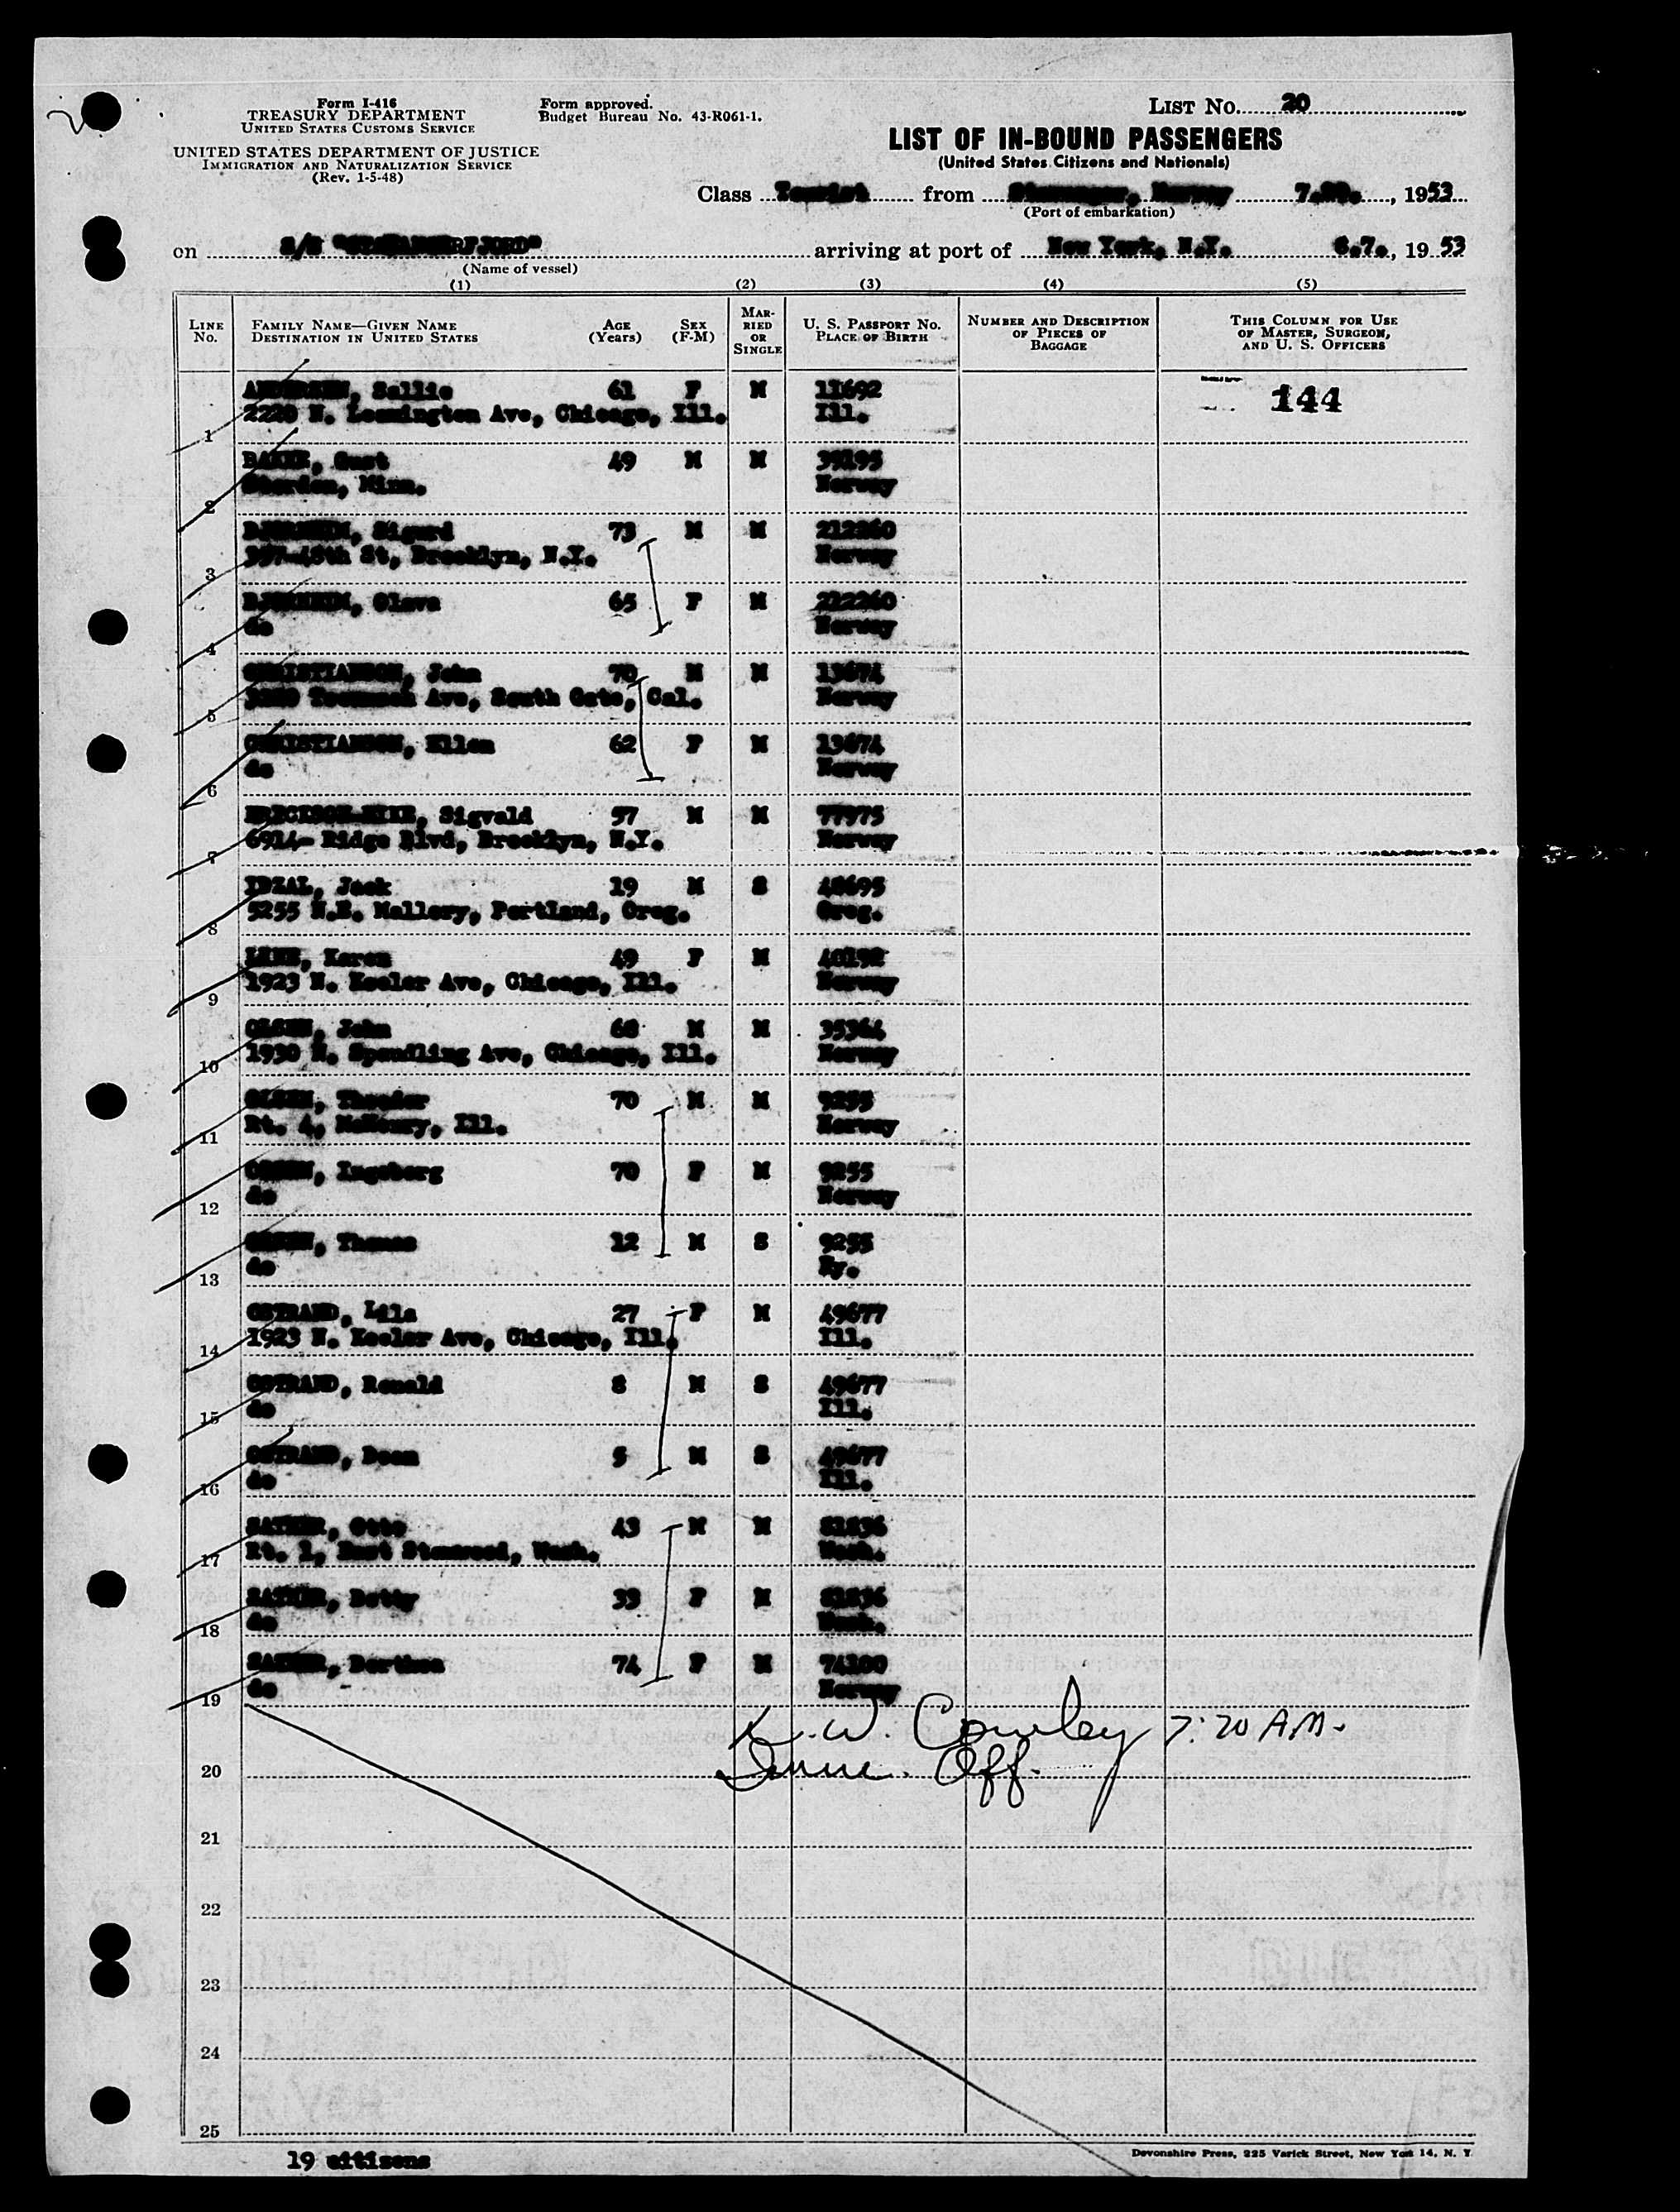 Form I-416
TREASURY DEPARTMENT
UNITED STATES CUSTOMS SERVICE
UNITED STATES DEPARTMENT OF JUSTICE
IMMIGRATION AND NATURALIZATION SERVICE
(Rev. 1-5-48)
Form approved.
Budget Bureau No. 43-R061-1.
LIST No. 20
LIST OF IN-BOUND PASSENGERS
(United States Citizens and Nationals)
Class Tourist from Stavanger, Norway 1953
(Port of embarkation)
on S/S "STAVANGERFJORD" arriving at port of New York, N.Y. 6.7., 1953
(Name of vessel)
(1) (2) (3) (4) (5)
LINE No. FAMILY NAME—GIVEN NAME DESTINATION IN UNITED STATES AGE (Years) SEX (F-M) MARRIED OR SINGLE U. S. PASSPORT No. PLACE OF BIRTH NUMBER AND DESCRIPTION OF PIECES OF BAGGAGE THIS COLUMN FOR USE OF MASTER, SURGEON, AND U. S. OFFICERS
ANDERSEN, Sallie 61 F M 11692 144
2220 N. Leamington Ave, Chicago, Ill. Ill.
1
BAKKE, Gust 49 M M 39195
Minn. Norway
2
Sigurd 73 M M 212260
St, Brooklyn, N.Y. Norway
3
Olava 65 F M 212260
do Norway
4
CHRISTIANSON, John 70 M M 13674
Ave, South Gate, Cal. Norway
5
CHRISTIANSON, Ellen 62 F M 13674
do Norway
6
Sigvald 57 M M 77975
6914- Ridge Blvd, Brooklyn, N.Y. Norway
7
IDZAL, Jack 19 M S 48695
5255 N.E. Mallory, Portland, Oreg. Oreg.
8
Karen 49 F M 40192
1923 N. Keeler Ave, Chicago, Ill. Norway
9
OLSEN, John 68 M M 35364
1930 N. Spaulding Ave, Chicago, Ill. Norway
10
OLSEN, Theodor 70 M M 9255
Rt. 4, McHenry, Ill. Norway
11
OLSEN, Ingeborg 70 F M 9255
do Norway
12
OLSEN, Thomas 12 M S 9255
do Ky.
13
OSTRAND, Lila 27 F M 49677
1923 N. Keeler Ave, Chicago, Ill. Ill.
14
OSTRAND, Ronald 8 M S 49677
do Ill.
15
OSTRAND, Dean 5 M S 49677
do Ill.
16
SATHER, Otto 43 M M 81836
Rt. 1, East Stanwood, Wash. Wash.
17
SATHER, Betty 39 F M 81836
do Wash.
18
SATHER, Berthea 74 F M 74100
do Norway
19
K. W. Cowley 7:20 A.M.
Imm. Off.
20
21
22
23
24
25
19 citizens
Devonshire Press, 225 Varick Street, New York 14, N. Y.